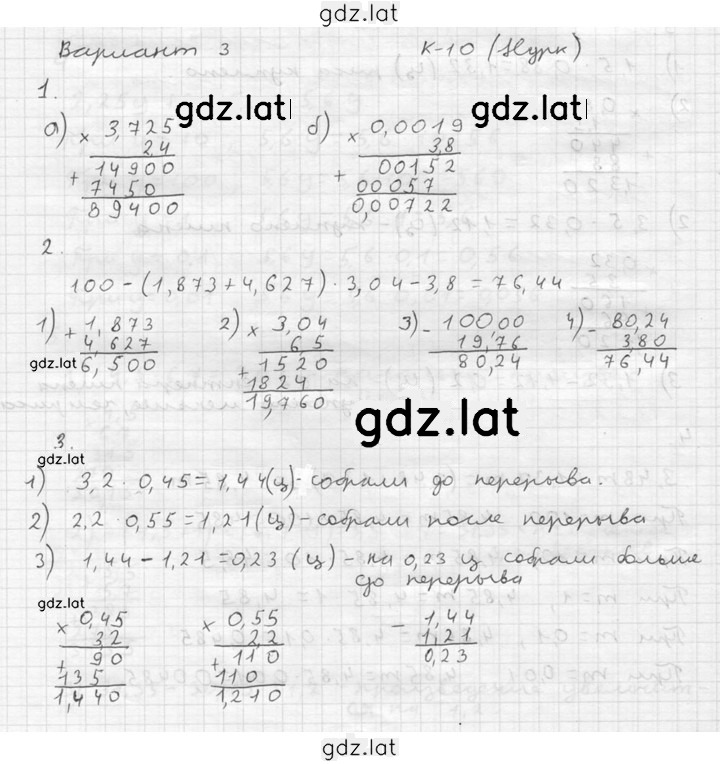 gdz.lat
Вариант 3 К-10 (Нурк)
1.
gdz.lat gdz.lat
а) × 3,725 б) × 0,0019
2,4 3,8
+ 14900 + 00152
7450 00057
89400 0,00722
2.
100-(1,873+4,627)·3,04-3,8=76,44
1) + 1,873 2) × 3,04 3) - 10000 4) - 80,24
4,627 6,5 19,76 3,80
gdz.lat 6,500 + 1520 80,24 76,44
1824
19,760
gdz.lat
3.
gdz.lat
1) 3,2·0,45=1,44(ц)-собрали до перерыва.
2) 2,2·0,55=1,21(ц)-собрали после перерыва
3) 1,44-1,21=0,23 (ц)-на 0,23 ц собрали больше
до перерыва
gdz.lat
× 0,45 × 0,55 - 1,44
32 2,2 1,21
+ 90 + 110 0,23
135 110
1,440 1,210
gdz.lat